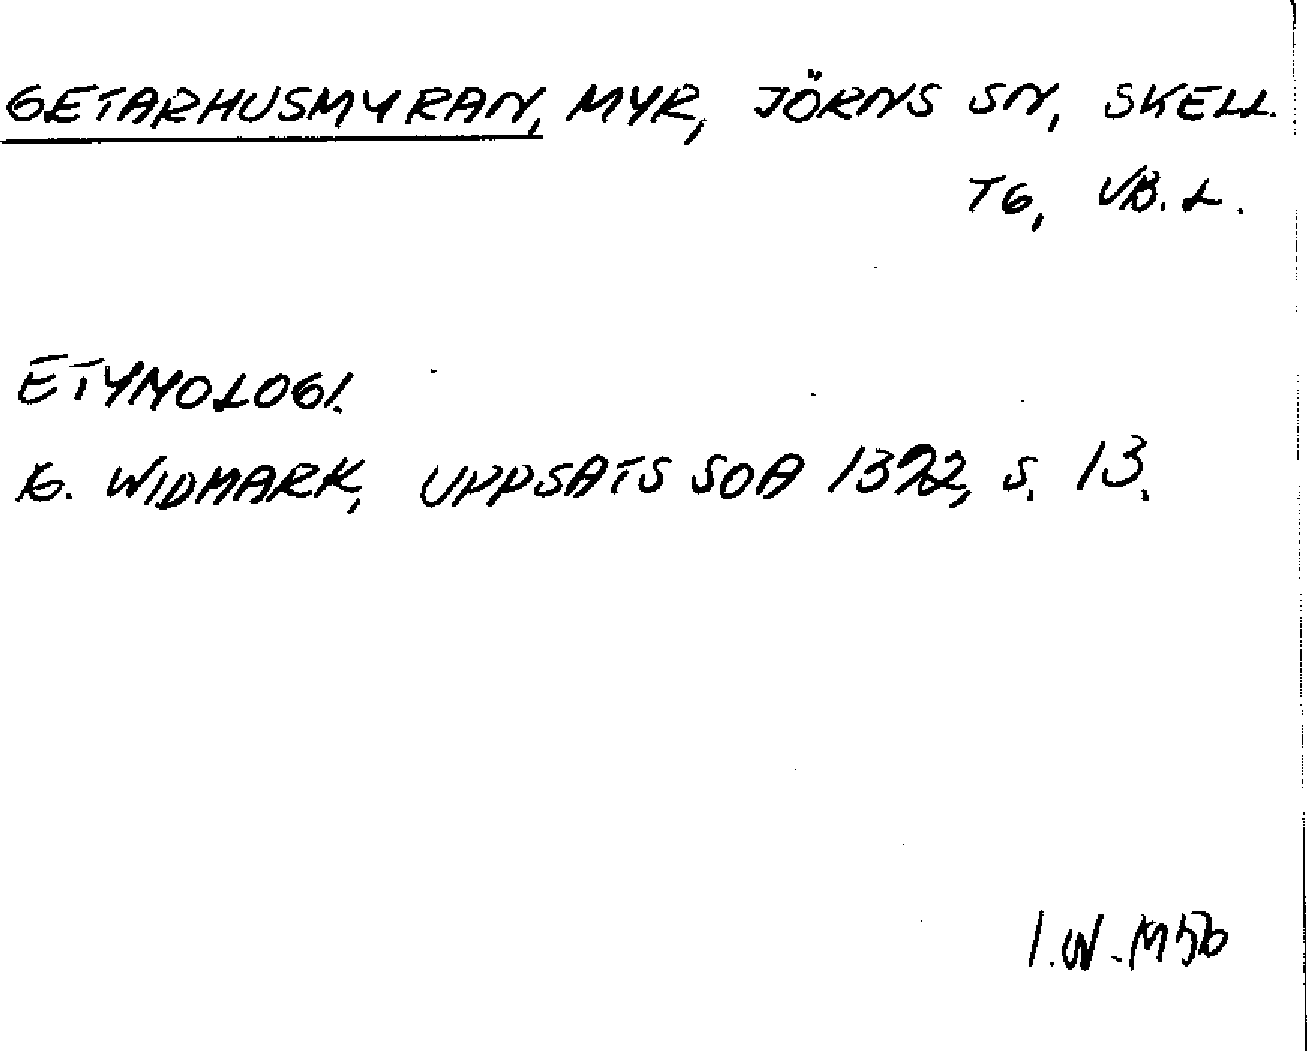 GETARHUSMYRAN, MYR, JÖRNS SN, SKELL.
TG, VB. L.
ETYMOLOGI.
G. WIDMARK, UPPSATS SOA 1322, S. 13.
I.W.